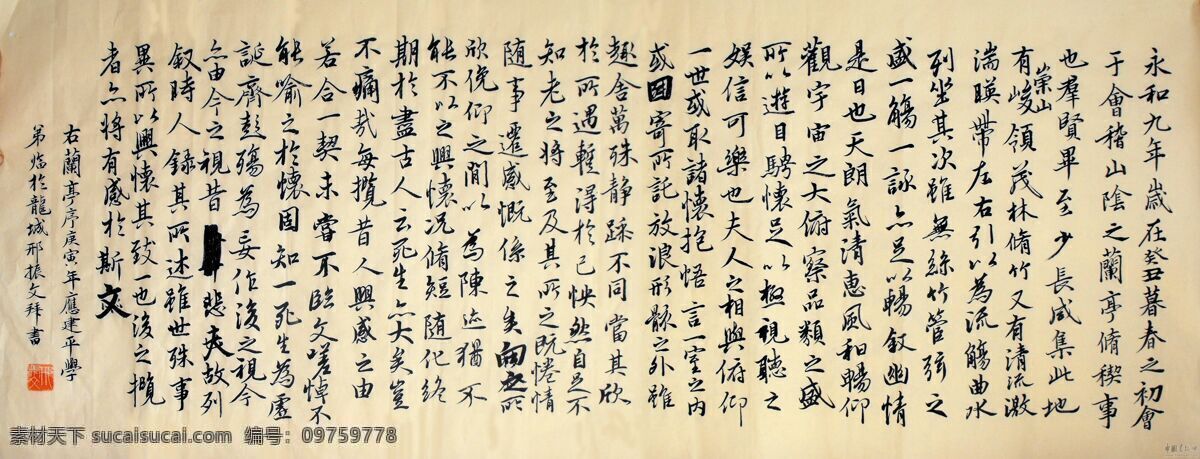 永和九年歲在癸丑暮春之初會
于會稽山陰之蘭亭脩稧事
也羣賢畢至少長咸集此地
有崇山峻領茂林脩竹又有清流激
湍暎帶左右引以為流觴曲水
列坐其次雖無絲竹管弦之
盛一觴一詠亦足以暢敘幽情
是日也天朗氣清惠風和暢仰
觀宇宙之大俯察品類之盛
所以遊目騁懷足以極視聽之
娛信可樂也夫人之相與俯仰
一世或取諸懷抱悟言一室之內
或因寄所託放浪形骸之外雖
趣舍萬殊静躁不同當其欣
於所遇輒得於己怏然自足不
知老之將至及其所之既惓情
随事遷感慨係之矣向之所
欣俛仰之閒以為陳迹猶不
能不以之興懷況脩短随化終
期於盡古人云死生亦大矣豈
不痛哉每攬昔人興感之由
若合一契未嘗不臨文嗟悼不
能喻之於懷固知一死生為虛
誕齊彭殤為妄作後之視今
亦由今之視昔悲夫故列
敘時人錄其所述雖世殊事
異所以興懷其致一也後之攬
者亦將有感於斯文
右蘭亭序庚寅年應建平學
弟臨於龍城邢振文拜書
素材天下 sucaisucai.com 编号：09759778